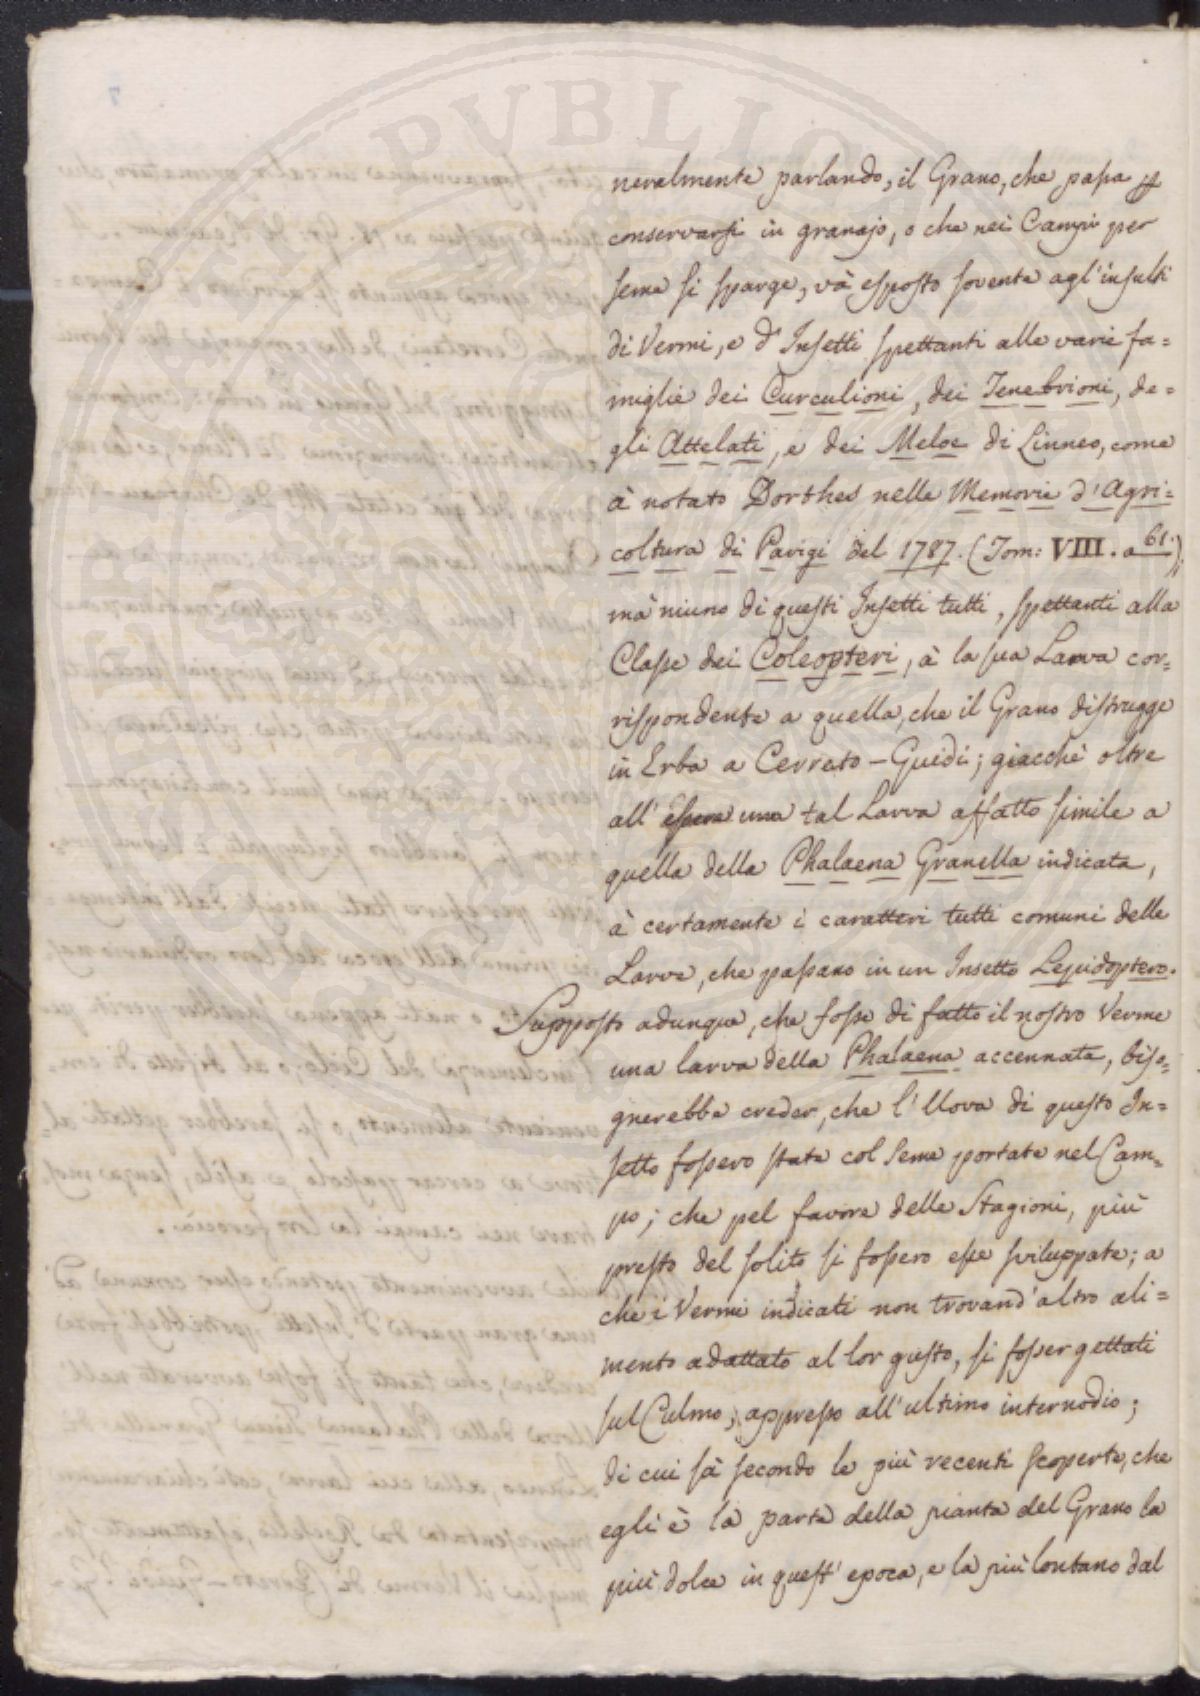 PUBLICAE
neralmente parlando, il Grano, che passa p
conservarsi in granajo, o che nei Campi per
seme si sparge, và esposto sovente agl'insulti
di Vermi, e d'Insetti spettanti alle varie fa=
miglie dei Curculioni, dei Tenebrioni, de=
gli Attelati, e dei Meloe di Linneo, come
à notato Dorthes nelle Memorie d'Agri=
coltura di Parigi del 1787. (Tom: VIII. a 61.);
mà niuno di questi Insetti tutti, spettanti alla
Classe dei Coleopteri, à la sua Larva cor=
rispondente a quella, che il Grano distrugge
in Erba a Cerreto-Guidi; giacchè oltre
all' essere una tal Larva affatto simile a
quella della Phalaena Granella indicata,
à certamente i caratteri tutti comuni delle
Larve, che passano in un Insetto Lepidoptero.
Supposto adunque, che fosse di fatto il nostro Verme
una larva della Phalaena accennata, biso=
gnerebbe creder, che l'Uova di questo In=
setto fossero state col seme portate nel Cam=
po; che pel favore delle Stagioni, più
presto del solito si fossero esse sviluppate; a
che i Vermi indicati non trovand'altro ali=
mento adattato al lor gusto, si fosser gettati
sul Culmo, appresso all'ultimo internodio;
di cui sà secondo le più recenti scoperte, che
egli è la parte della pianta del Grano la
più dolce in quest'epoca, e la più lontano dal